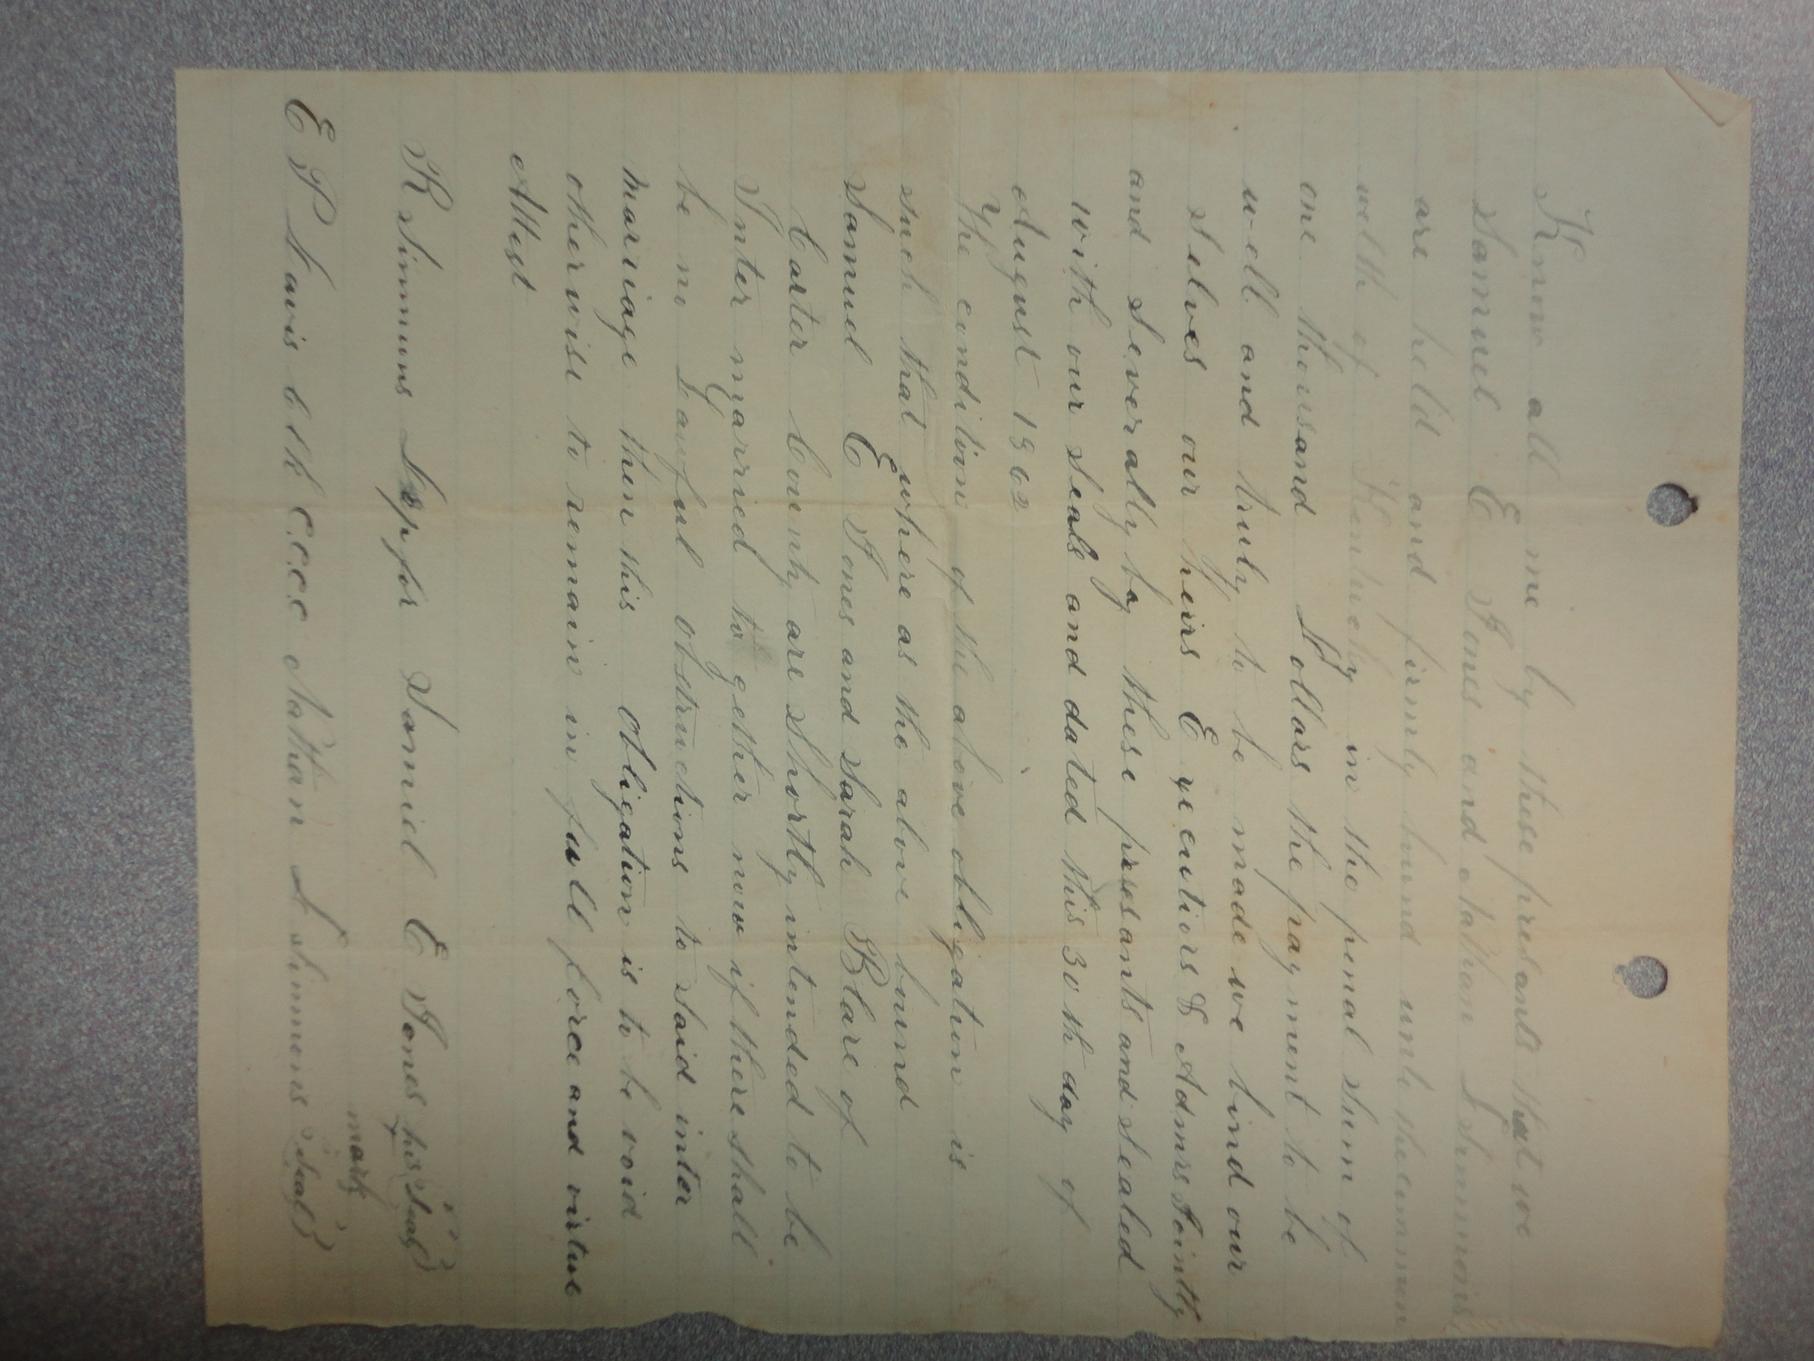 Know all me by these presants that we
Samuel E Jones and Nathan L Simmons
are held and firmly bound unto the common
welth of Kentucky in the penal sum of
one thousand Dollars the payment to be
well and truly to be made we bind our
selves our heirs Executiors & Admrs Jointly
and Severally by these presants and sealed
with our seals and dated this 30th day of
August 1862
The condition of the above obligation is
such that where as the above bound
Samuel E Jones and Sarah Blare of
Carter County are Shortly intended to be
Inter married to gether now if there shall
be no Lawful obstructions to said inter
marriage then this obligation is to be void
other wise to remain in full force and virtue
Attest
R Simmons Dep for Samiel E Jones his (Seal)
mark
E P Davis Clk C.C.C Nathan L Simmons (Seal)